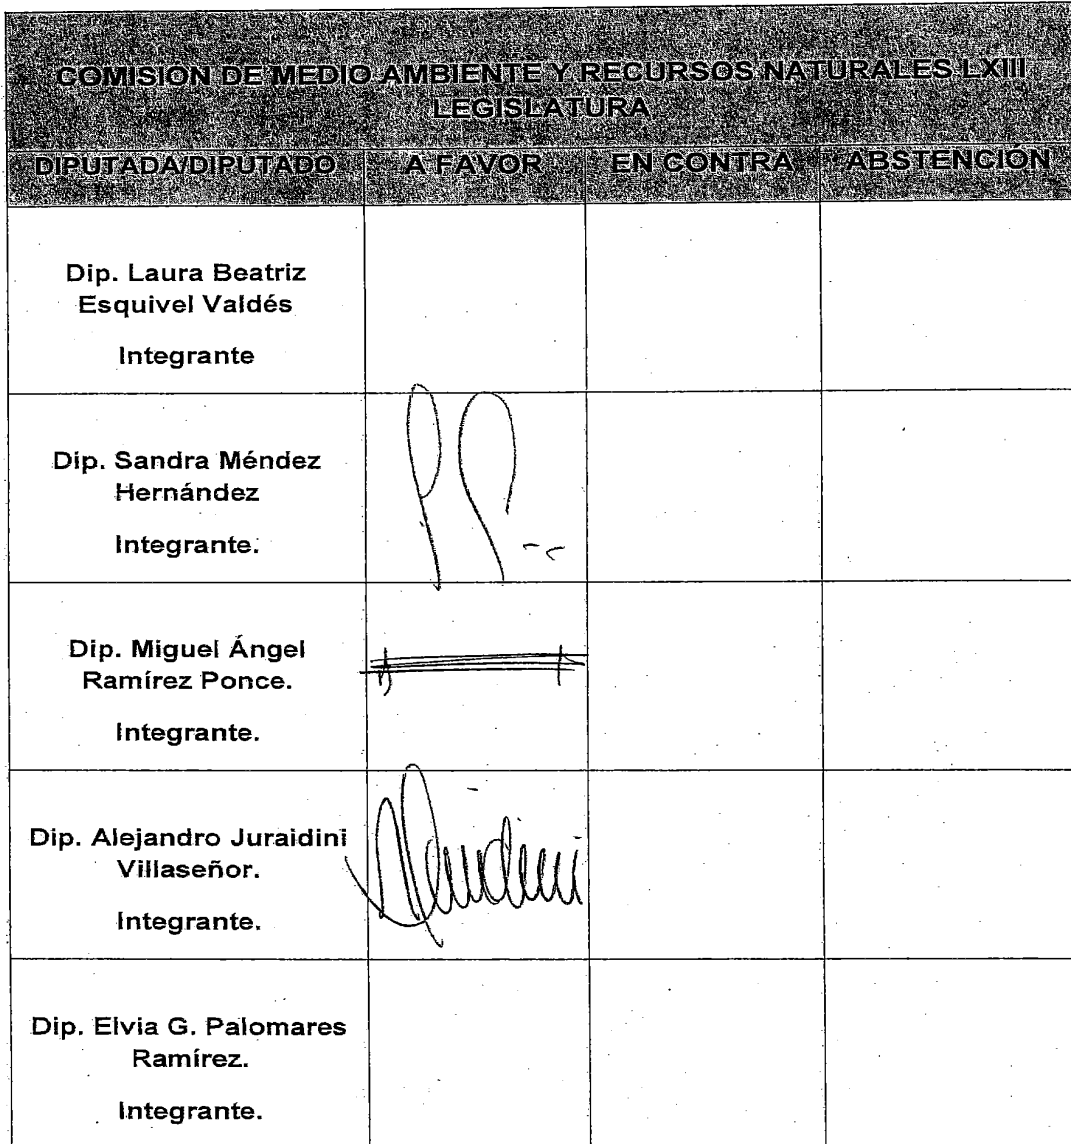 COMISIÓN DE MEDIO AMBIENTE Y RECURSOS NATURALES LXIII
LEGISLATURA
DIPUTADA/DIPUTADO A FAVOR EN CONTRA ABSTENCIÓN
Dip. Laura Beatriz
Esquivel Valdés
Integrante
Dip. Sandra Méndez
Hernández
Integrante.
Dip. Miguel Ángel
Ramírez Ponce.
Integrante.
Dip. Alejandro Juraidini
Villaseñor.
Integrante.
Dip. Elvia G. Palomares
Ramírez.
Integrante.